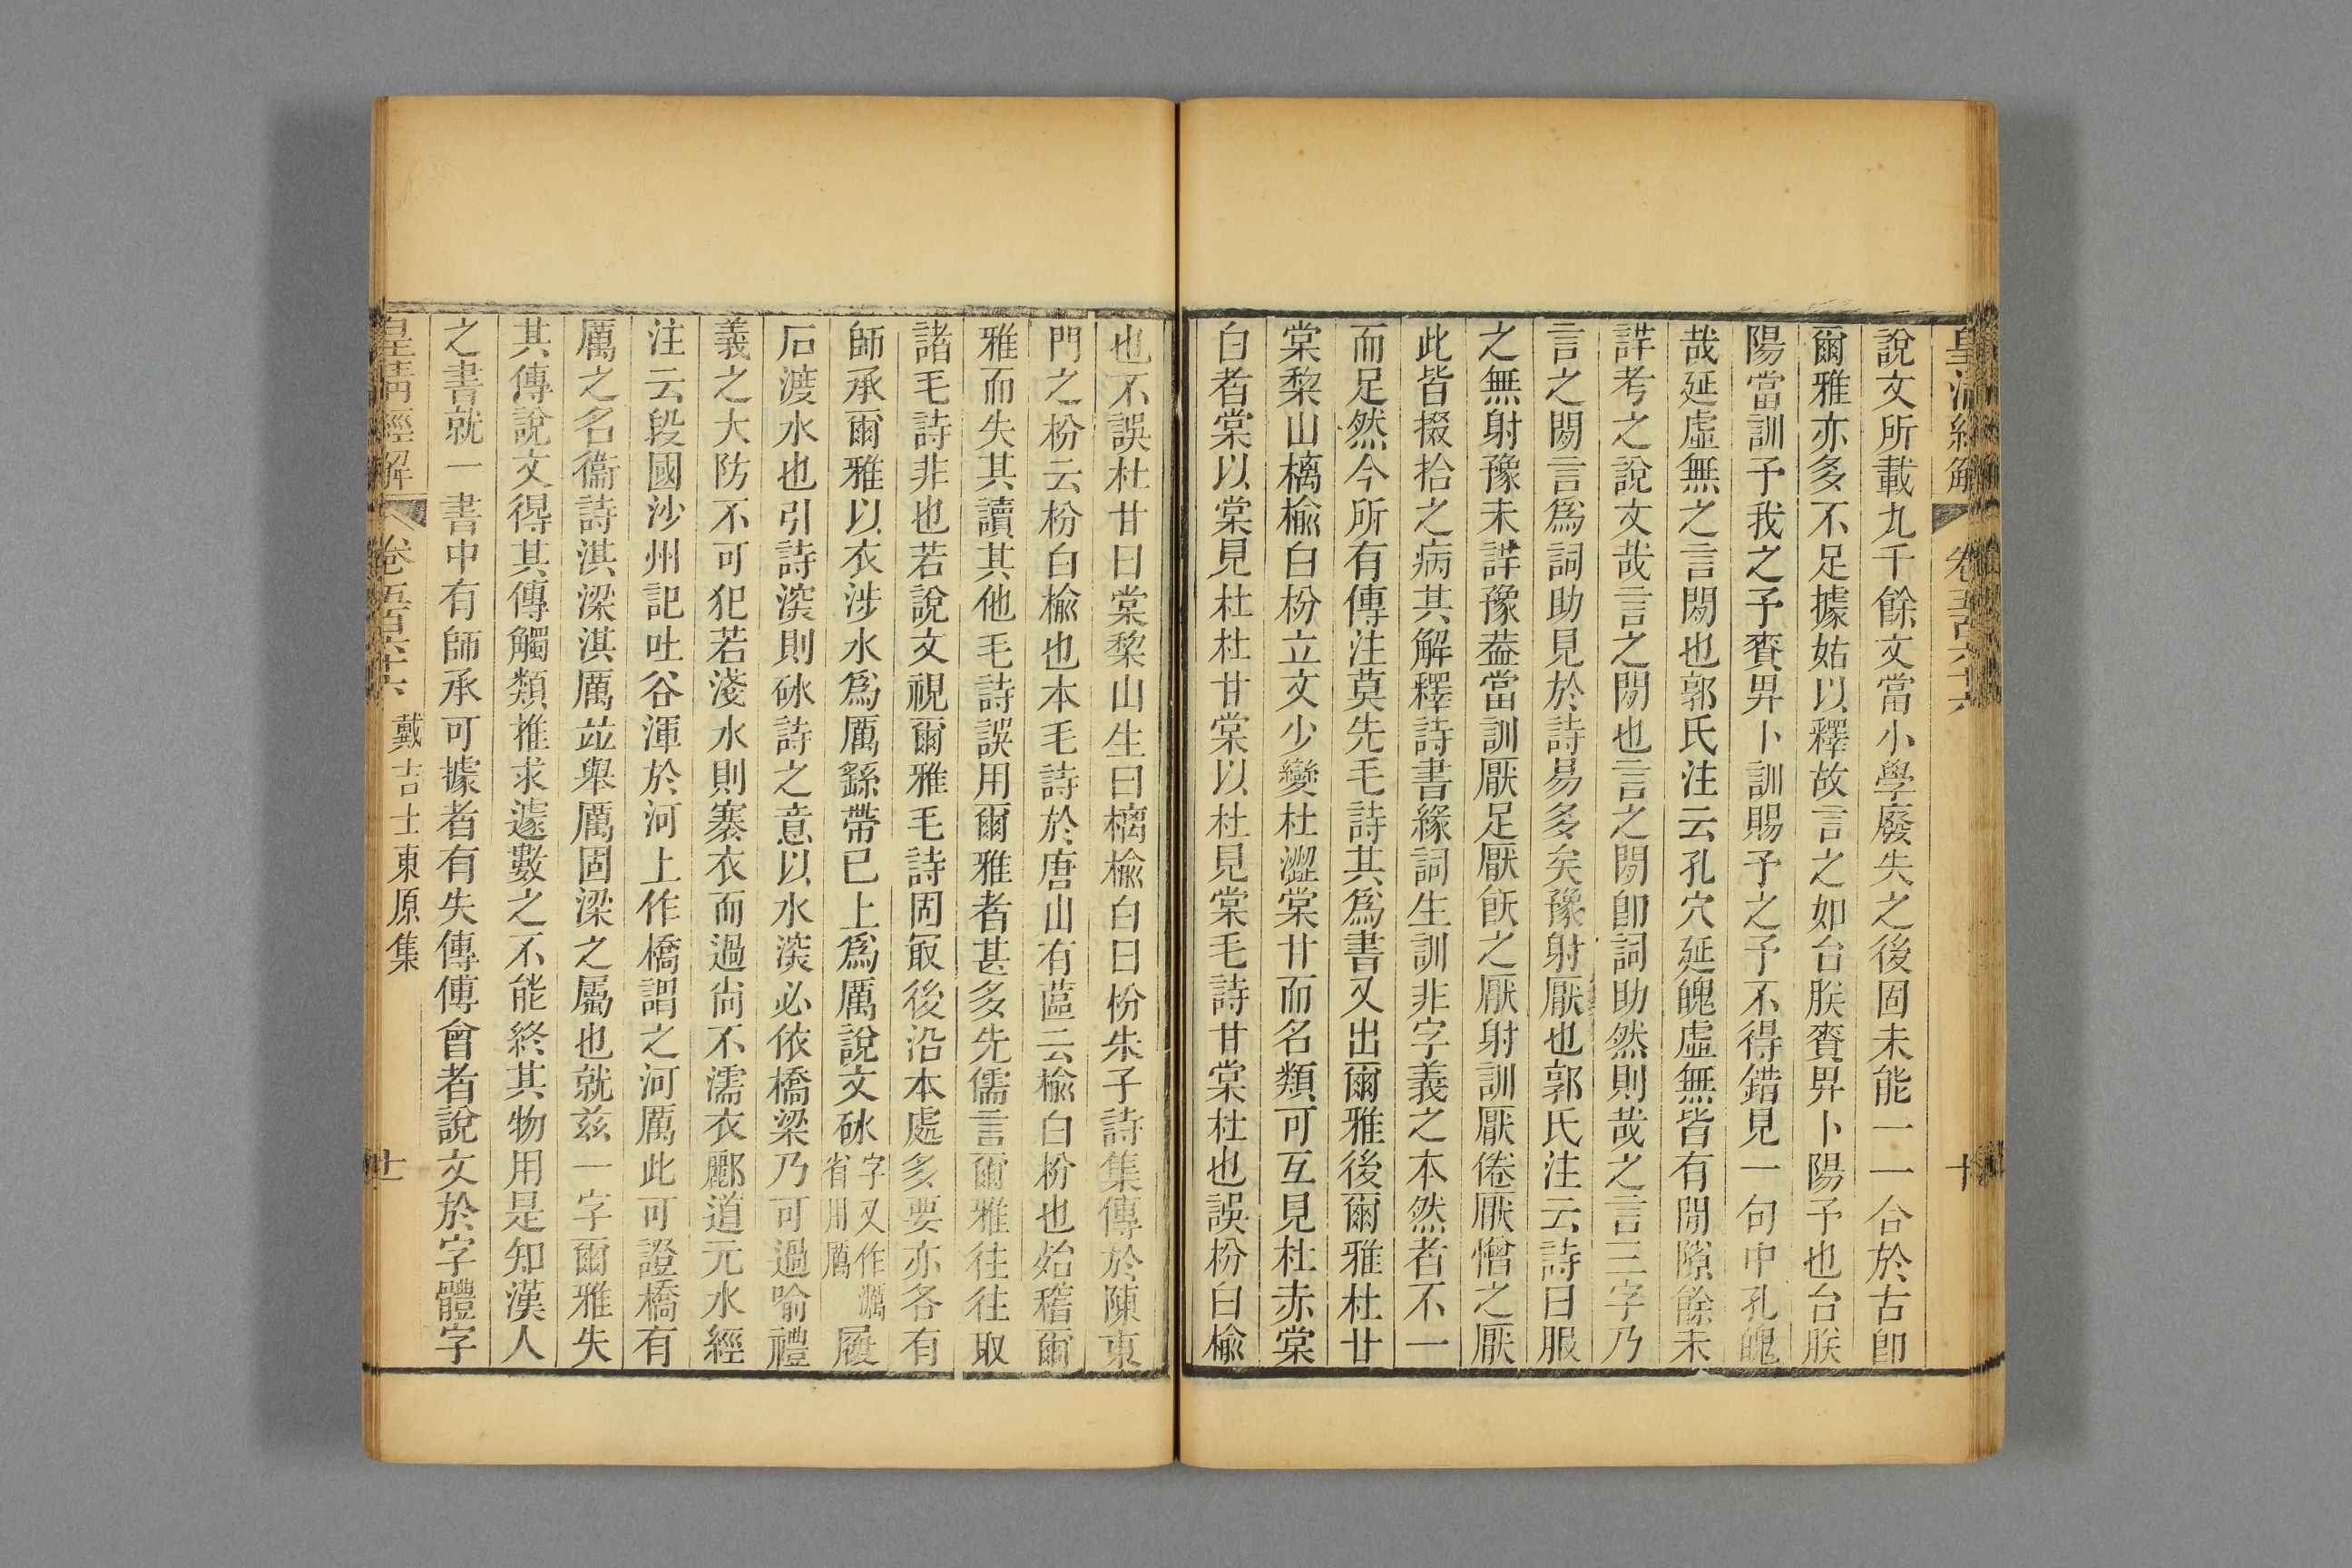 皇清經解 卷五百六十六 十
說文所載九千餘文當小學廢失之後固未能一一合於古卽
爾雅亦多不足據姑以釋故言之如台朕賚畀卜陽予也台朕
陽當訓予我之予賚畀卜訓賜予之予不得錯見一句中孔魄
哉延虛無之言閒也郭氏注云孔穴延魄虛無皆有閒隙餘未
詳考之說文哉言之閒也言之閒卽詞助然則哉之言三字乃
言之閒言爲詞助見於詩易多矣豫射厭也郭氏注云詩曰服
之無射豫未詳豫葢當訓厭足厭飫之厭射訓厭倦厭憎之厭
此皆掇拾之病其解釋詩書緣詞生訓非字義之本然者不一
而足然今所有傳注莫先毛詩其爲書又出爾雅後爾雅杜甘
棠棃山樆楡白枌立文少變杜澀棠甘而名類可互見杜赤棠
白者棠以棠見杜杜甘棠以杜見棠毛詩甘棠杜也誤枌白楡
也不誤杜甘曰棠棃山生曰樆楡白曰枌朱子詩集傳於陳東
門之枌云枌白楡也本毛詩於唐山有蓲云楡白枌也始稽爾
雅而失其讀其他毛詩誤用爾雅者甚多先儒言爾雅往往取
諸毛詩非也若說文視爾雅毛詩固㝡後沿本處多要亦各有
師承爾雅以衣涉水爲厲繇帶已上爲厲說文砅字又作濿省用厲履
石渡水也引詩深則砅詩之意以水深必依橋梁乃可過喻禮
義之大防不可犯若淺水則褰衣而過尚不濡衣酈道元水經
注云段國沙州記吐谷渾於河上作橋謂之河厲此可證橋有
厲之名衞詩淇梁淇厲竝舉厲固梁之屬也就茲一字爾雅失
其傳說文得其傳觸類推求遽數之不能終其物用是知漢人
之書就一書中有師承可據者有失傳傅會者說文於字體字
皇清經解 卷五百六十六 戴吉士東原集 十一